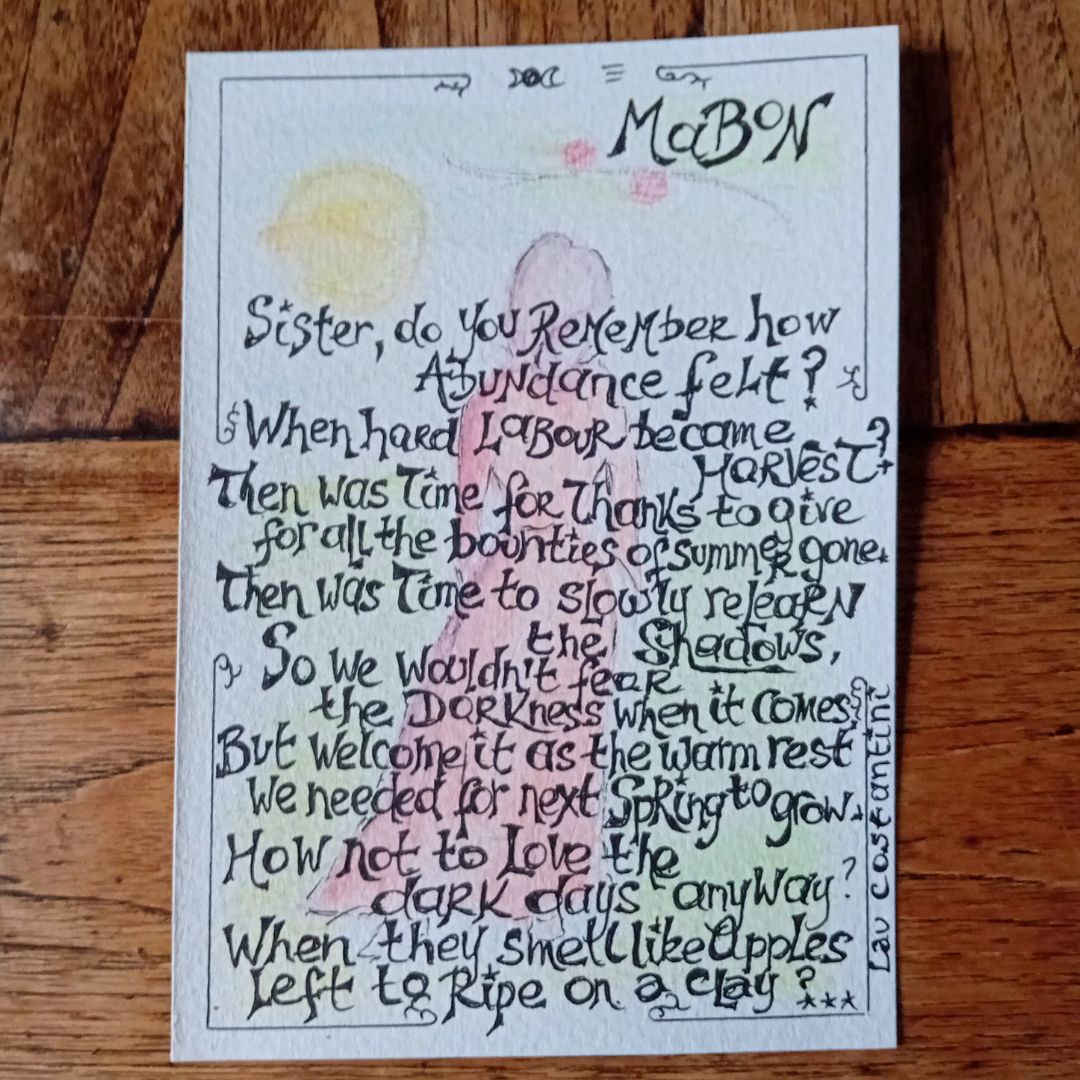 MaBoN
Sister, do you Remember how
Abundance felt?
When hard Labour became
Harvest?
Then was Time for Thanks to give
for all the bounties of summer gone.
Then was Time to slowly relearn
the Shadows,
So we wouldn't fear
the Darkness when it comes
But welcome it as the warm rest
we needed for next Spring to grow.
How not to Love the
dark days anyway?
When they smell like apples
Left to Ripe on a clay?***
Lav Costantini